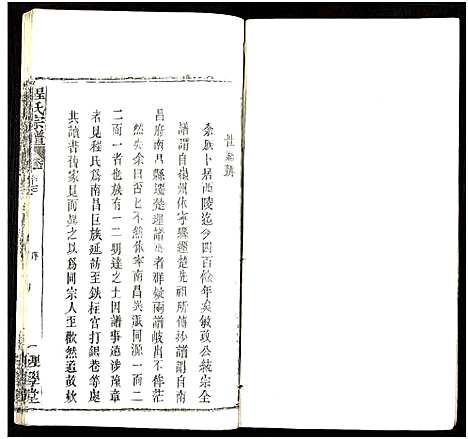 世系蹟
余族卜居西陵迄今四百餘年矣敏政公統宗全
譜謂自徽州休寧縣遷楚先祖所傳抄譜謂自南
昌府南昌縣遷楚理譜者群疑兩譜岐出不侔茫
然失余曰否匕不然休寧南昌異派同源一而二
二而一者也族有一二明達之士因譜事遠涉豫章
者見程氏爲南昌巨族延訪至鉄柱宮打銀巷等處
共讀書傳家見而異之以爲同宗人至歡然道故款
程氏宗譜
卷
序
一
理學堂